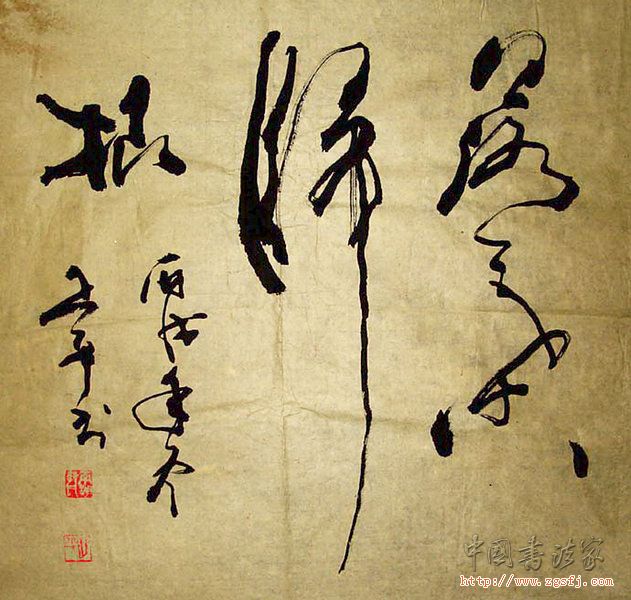 落葉
歸
根
丙戌年冬
王平书
中国书法家
http://www.zgsfj.com